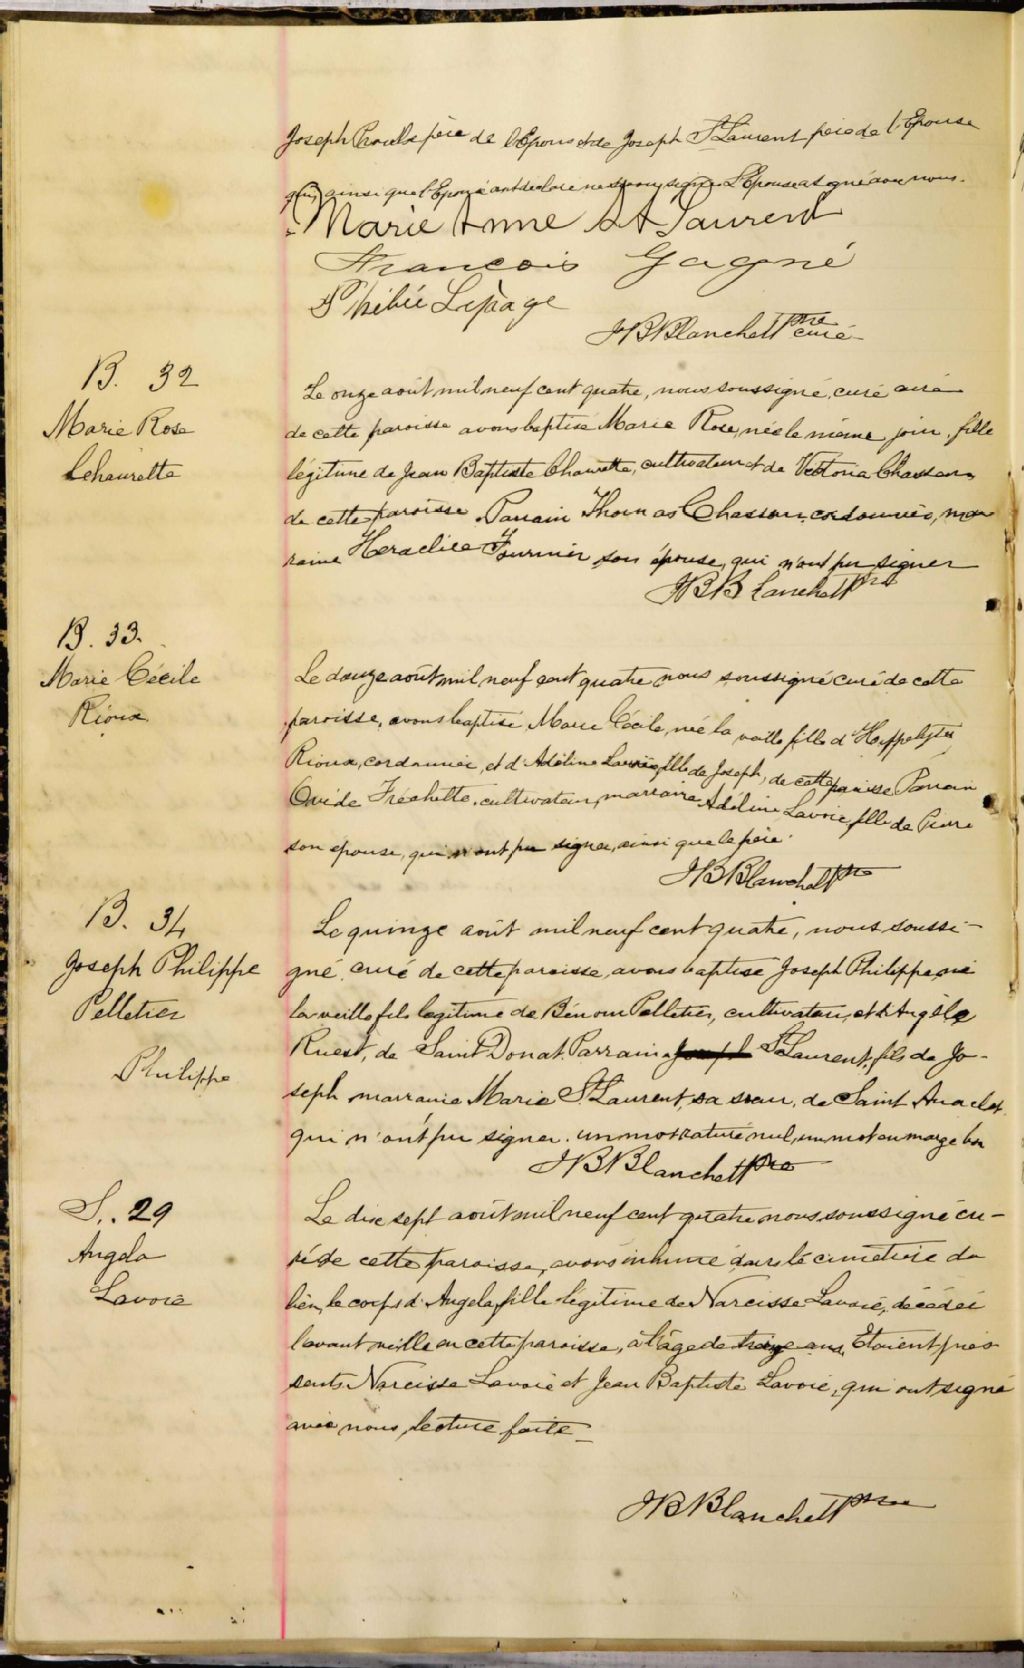 Joseph Proulx père de l'Epoux et de Joseph St Laurent père de l'Epouse
qui, ainsi que l'Epoux ont déclaré ne savoir signer. L'Epouse a signé avec nous.
Marie Anne St Laurent
François Gagné
Lepage
JBBlanchett ptre curé
B. 32
Marie Rose
Chaurette
Le onze août mil neuf cent quatre, nous soussigné, curé
de cette paroisse avons baptisé Marie Rose, née le même jour, fille
légitime de Jean Baptiste Chaurette, cultivateur et de Victoria Chasson
de cette paroisse. Parrain Thomas Chasson, cordonnier, mar
raine Heraclice Fournier son épouse, qui n'ont pu signer
JBBlanchett ptre
B. 33.
Marie Cécile
Rioux
Le douze août mil neuf cent quatre nous soussigné curé de cette
paroisse, avons baptisé Marie Cécile, née la veille fille d'Hippolyte
Rioux, cordonnier, et d'Adéline Lavoie, fille de Joseph, de cette paroisse Parrain
Ovide Fréchette, cultivateur, marraine Adéline Lavoie fille de Pierre
son épouse, qui n'ont pu signer, ainsi que le père.
JBBlanchett ptre
B. 34
Joseph Philippe
Pelletier
Philippe
Le quinze août mil neuf cent quatre, nous soussi-
gné curé de cette paroisse avons baptisé Joseph Philippe né
la veille fils légitime de Bénoni Pelletier, cultivateur, et d'Angèle
Ruest, de Saint Donat. Parrain Joseph St Laurent, fils de Jo-
seph marraine Marie St Laurent, sa sœur, de Saint Anaclet
qui n'ont pu signer. un mot rature nul, un mot en marge bon
JBBlanchett ptre
S. 29
Angela
Lavoie
Le dix sept août mil neuf cent quatre nous soussigné cu-
ré de cette paroisse, avons inhumé dans le cimetière du
lieu, le corps d'Angela, fille légitime de Narcisse Lavoie, décédée
l'avant veille en cette paroisse, à l'âge de treize ans. Etaient pré-
sents Narcisse Lavoie et Jean Baptiste Lavoie, qui ont signé
avec nous, lecture faite_
JBBlanchett ptre